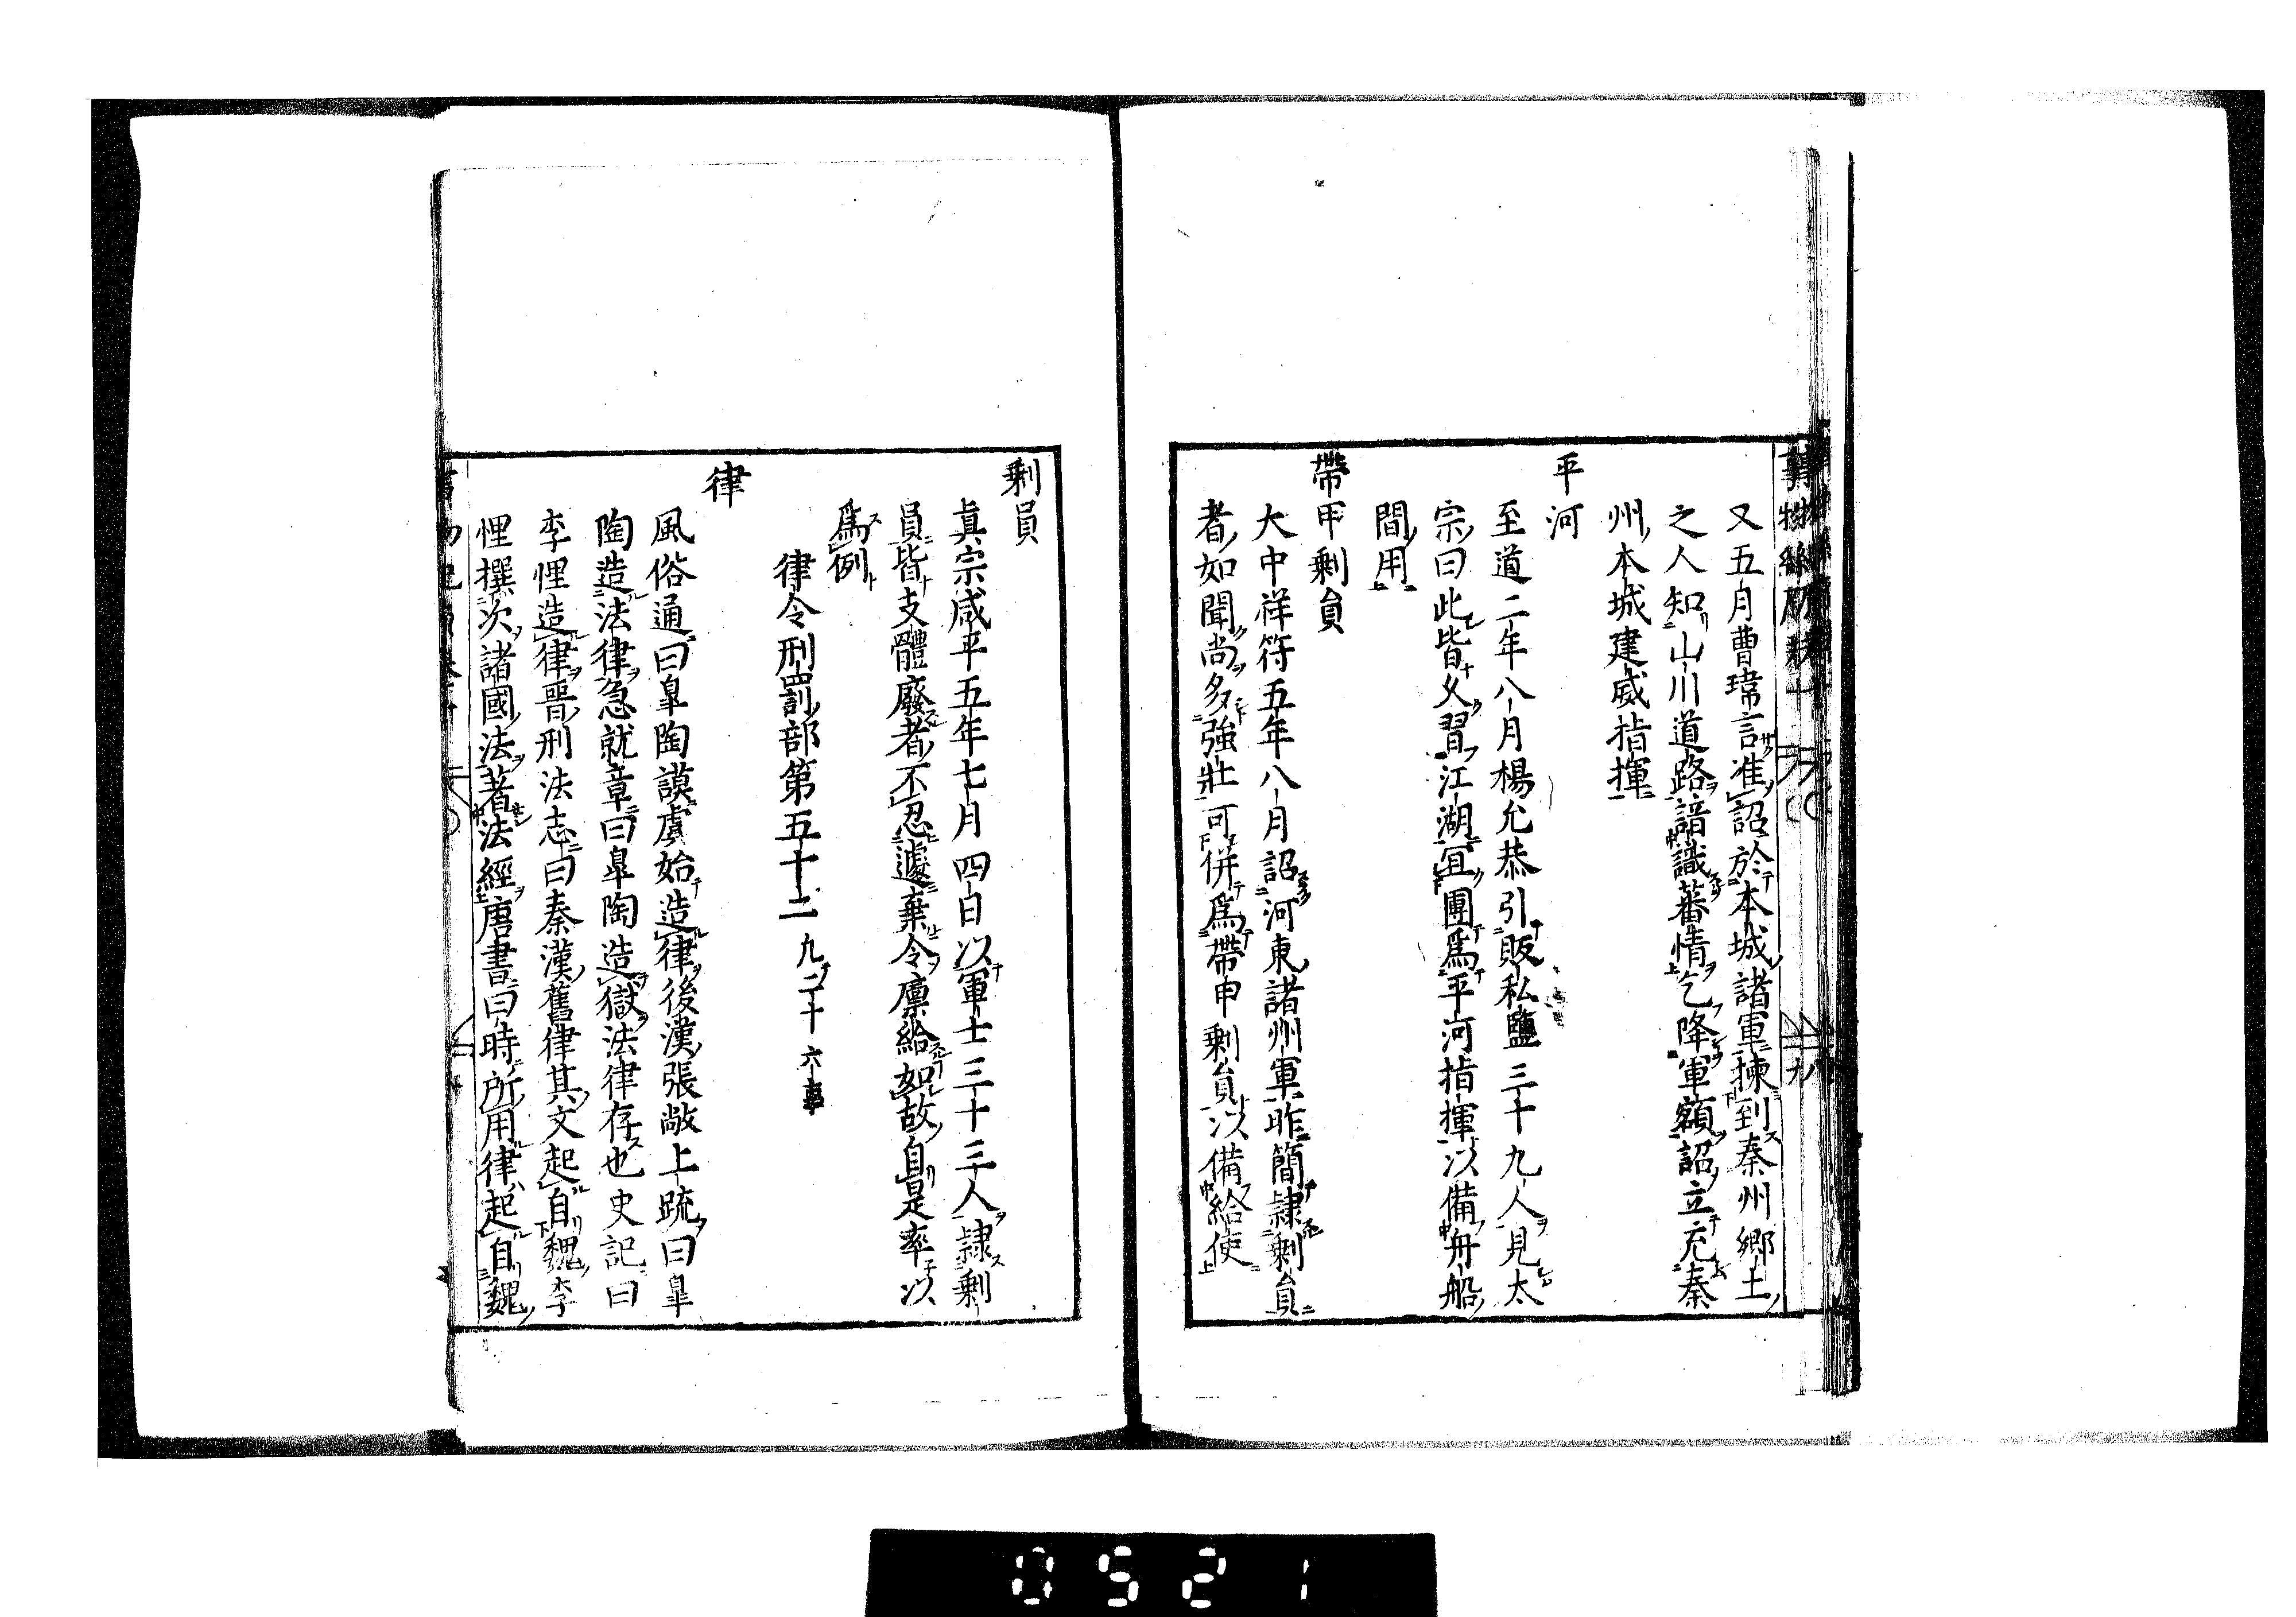 又五月曹瑋言准詔於本城諸軍揀到秦州鄉土
之人知山川道路諳識蕃情乞降軍額詔立充秦
州本城建威指揮
平河
至道二年八月楊允恭引販私鹽三十九人見太
宗曰此皆久習江湖宜團爲平河指揮以備舟船
間用
帶甲剩員
大中祥符五年八月詔河東諸州軍昨簡隷剩員
者如聞尚多強壯可併爲帶甲剩員以備給使
剩員
眞宗咸平五年七月四日以軍士三十三人隷剩
員皆支體廢者不忍遽棄令廩給如故自是率以
爲例
律令刑罰部第五十二 九二十六事
律
風俗通曰皐陶謨虞始造律後漢張敞上疏曰皐
陶造法律急就章曰皐陶造獄法律存也史記曰
李悝造律晋刑法志曰秦漢舊律其文起自魏李
悝撰次諸國法著法經唐書曰時所用律起自魏
0521